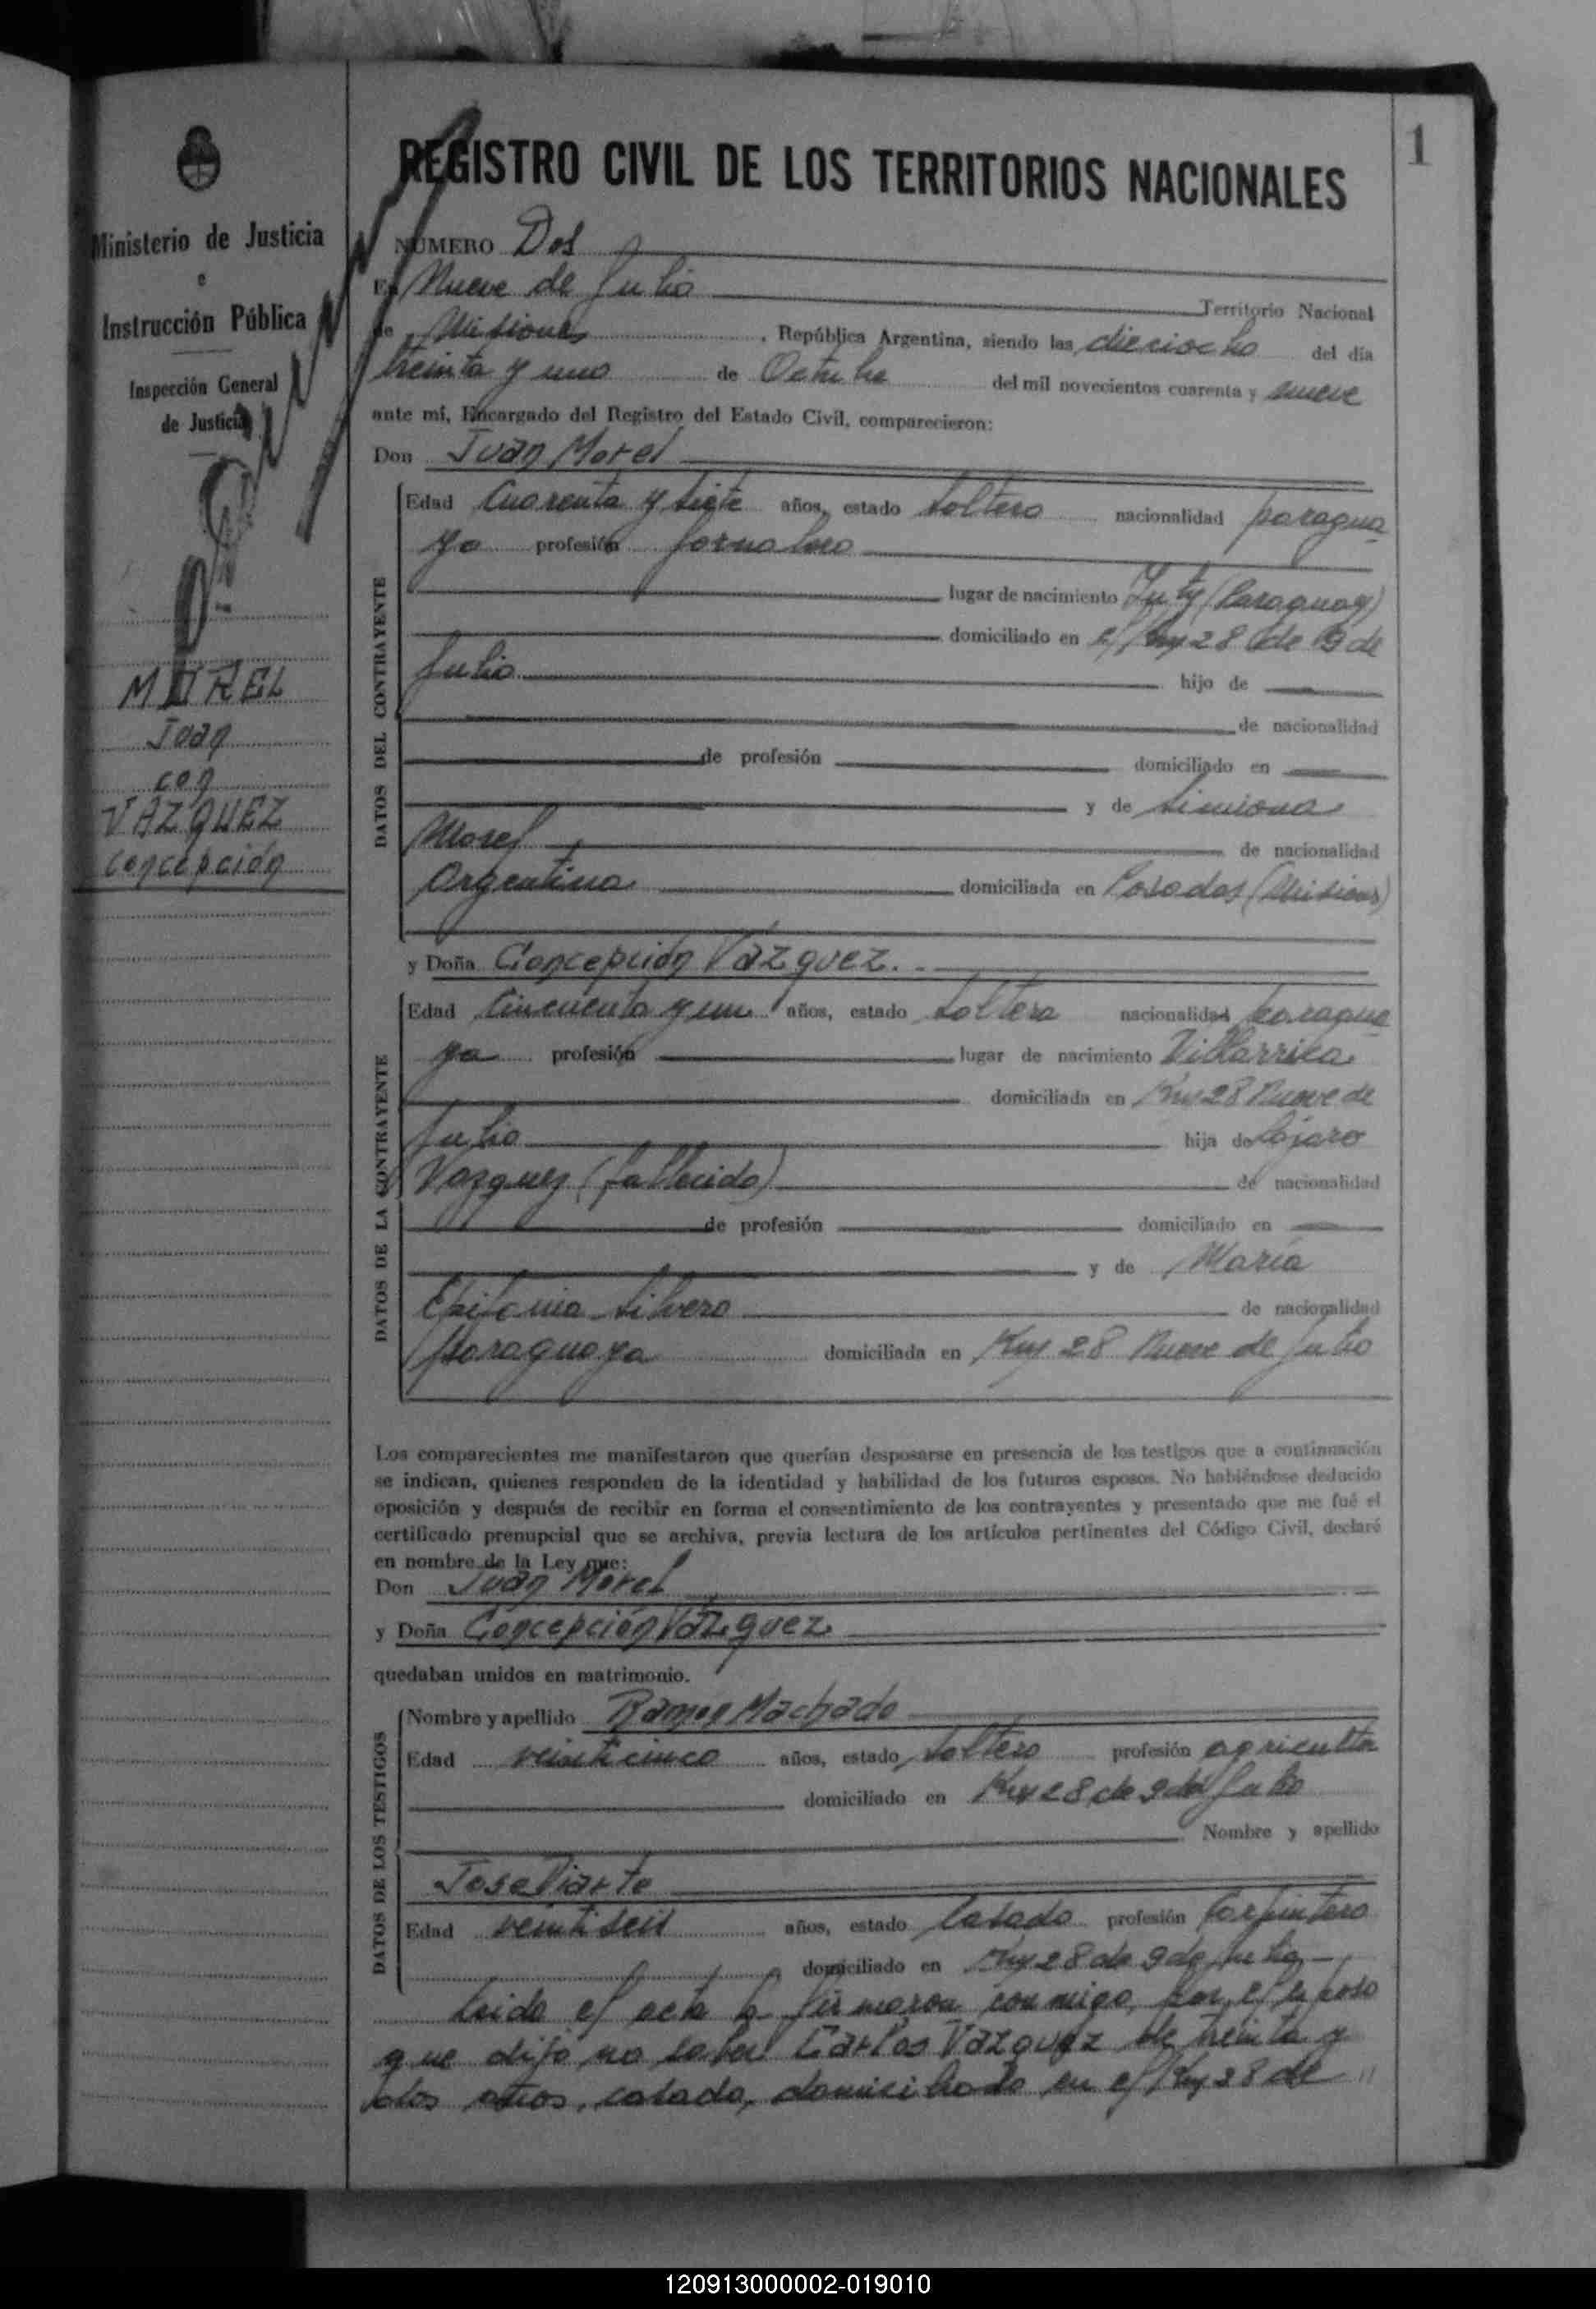 1
Ministerio de Justicia
e
Instrucción Pública
Inspección General
de Justicia
MOREL
Juan
con
VÁZQUEZ
Concepción
REGISTRO CIVIL DE LOS TERRITORIOS NACIONALES
NÚMERO Dos
En Nueve de Julio
Territorio Nacional
de Misiones, República Argentina, siendo las dieciocho del día
treinta y uno de Octubre del mil novecientos cuarenta y nueve
ante mí, Encargado del Registro del Estado Civil, comparecieron:
Don Juan Morel
DATOS DEL CONTRAYENTE
Edad Cuarenta y siete años, estado soltero nacionalidad paragua
ya profesión jornalero
lugar de nacimiento Yuty (Paraguay)
domiciliado en el Km 28 de 9 de
Julio hijo de
de nacionalidad
de profesión domiciliado en
y de Simiona
Morel de nacionalidad
Argentina domiciliada en Posadas (Misiones)
y Doña Concepción Vázquez.
DATOS DE LA CONTRAYENTE
Edad Cincuenta y un años, estado soltera nacionalidad paragua
ya profesión lugar de nacimiento Villarrica
domiciliada en Km 28 Nueve de
Julio hija de Lázaro
Vazquez (fallecido) de nacionalidad
de profesión domiciliado en
y de María
Epifania Silvero de nacionalidad
paraguaya domiciliada en Km 28 Nueve de Julio
Los comparecientes me manifestaron que querían desposarse en presencia de los testigos que a continuación
se indican, quienes responden de la identidad y habilidad de los futuros esposos. No habiéndose deducido
oposición y después de recibir en forma el consentimiento de los contrayentes y presentado que me fué el
certificado prenupcial que se archiva, previa lectura de los artículos pertinentes del Código Civil, declaré
en nombre de la Ley que:
Don Juan Morel
y Doña Concepción Vázquez
quedaban unidos en matrimonio.
DATOS DE LOS TESTIGOS
Nombre y apellido Ramon Machado
Edad veinticinco años, estado soltero profesión agriculto
domiciliado en Km 28 de 9 de Julio
Nombre y apellido
Jose Piarte
Edad veintiseis años, estado Casado profesión Carpintero
domiciliado en Km 28 de 9 de Julio
Leida el acta la firmaron conmigo, por el esposo
que dijo no saber Carlos Vazquez de treinta y
dos años, casado, domiciliado en el Km 28 de "
120913000002-019010